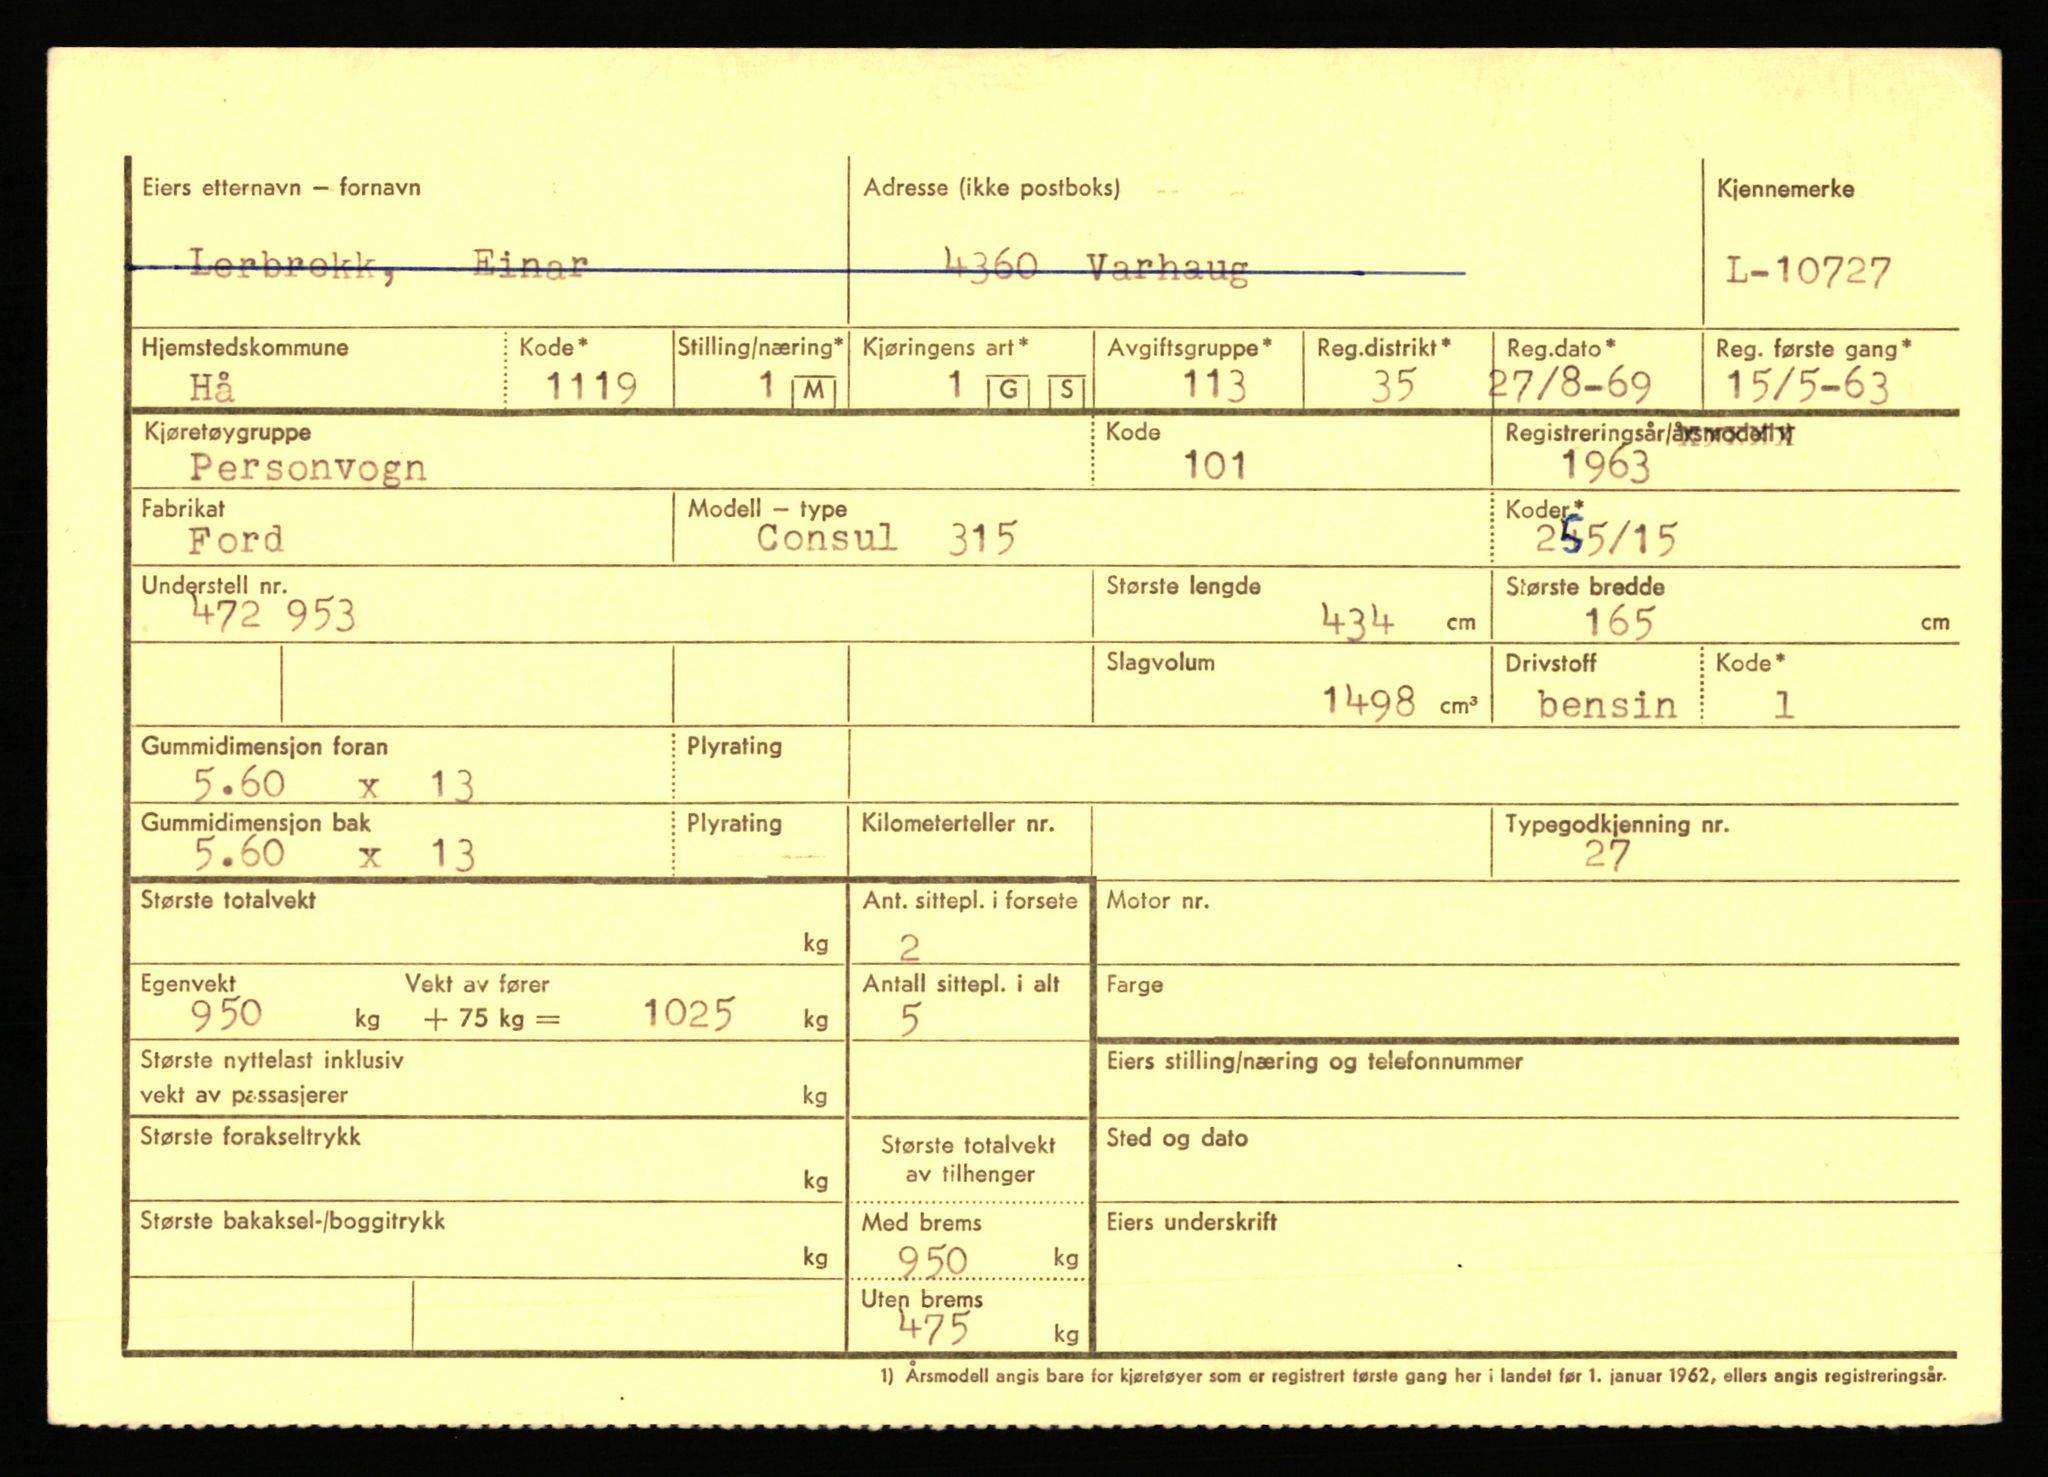 Eiers etternavn – fornavn Adresse (ikke postboks) Kjennemerke
Lerbrekk, Einar 4360 Varhaug L-10727
Hjemstedskommune Kode* Stilling/næring* Kjøringens art* Avgiftsgruppe* Reg.distrikt* Reg.dato* Reg. første gang*
Hå 1119 1 M 1 G S 113 35 27/8-69 15/5-63
Kjøretøygruppe Kode Registreringsår/årsmodell 1)
Personvogn 101 1963
Fabrikat Modell – type Koder*
Ford Consul 315 255/15
Understell nr. Største lengde Største bredde
472 953 434 cm 165 cm
Slagvolum Drivstoff Kode*
1498 cm³ bensin 1
Gummidimensjon foran Plyrating
5.60 x 13
Gummidimensjon bak Plyrating Kilometerteller nr. Typegodkjenning nr.
5.60 x 13 27
Største totalvekt Ant. sittepl. i forsete Motor nr.
kg 2
Egenvekt Vekt av fører Antall sittepl. i alt Farge
950 kg + 75 kg = 1025 kg 5
Største nyttelast inklusiv Eiers stilling/næring og telefonnummer
vekt av passasjerer kg
Største forakseltrykk Største totalvekt Sted og dato
kg av tilhenger
Største bakaksel-/boggitrykk Med brems Eiers underskrift
kg 950 kg
Uten brems
475 kg
1) Årsmodell angis bare for kjøretøyer som er registrert første gang her i landet før 1. januar 1962, ellers angis registreringsår.